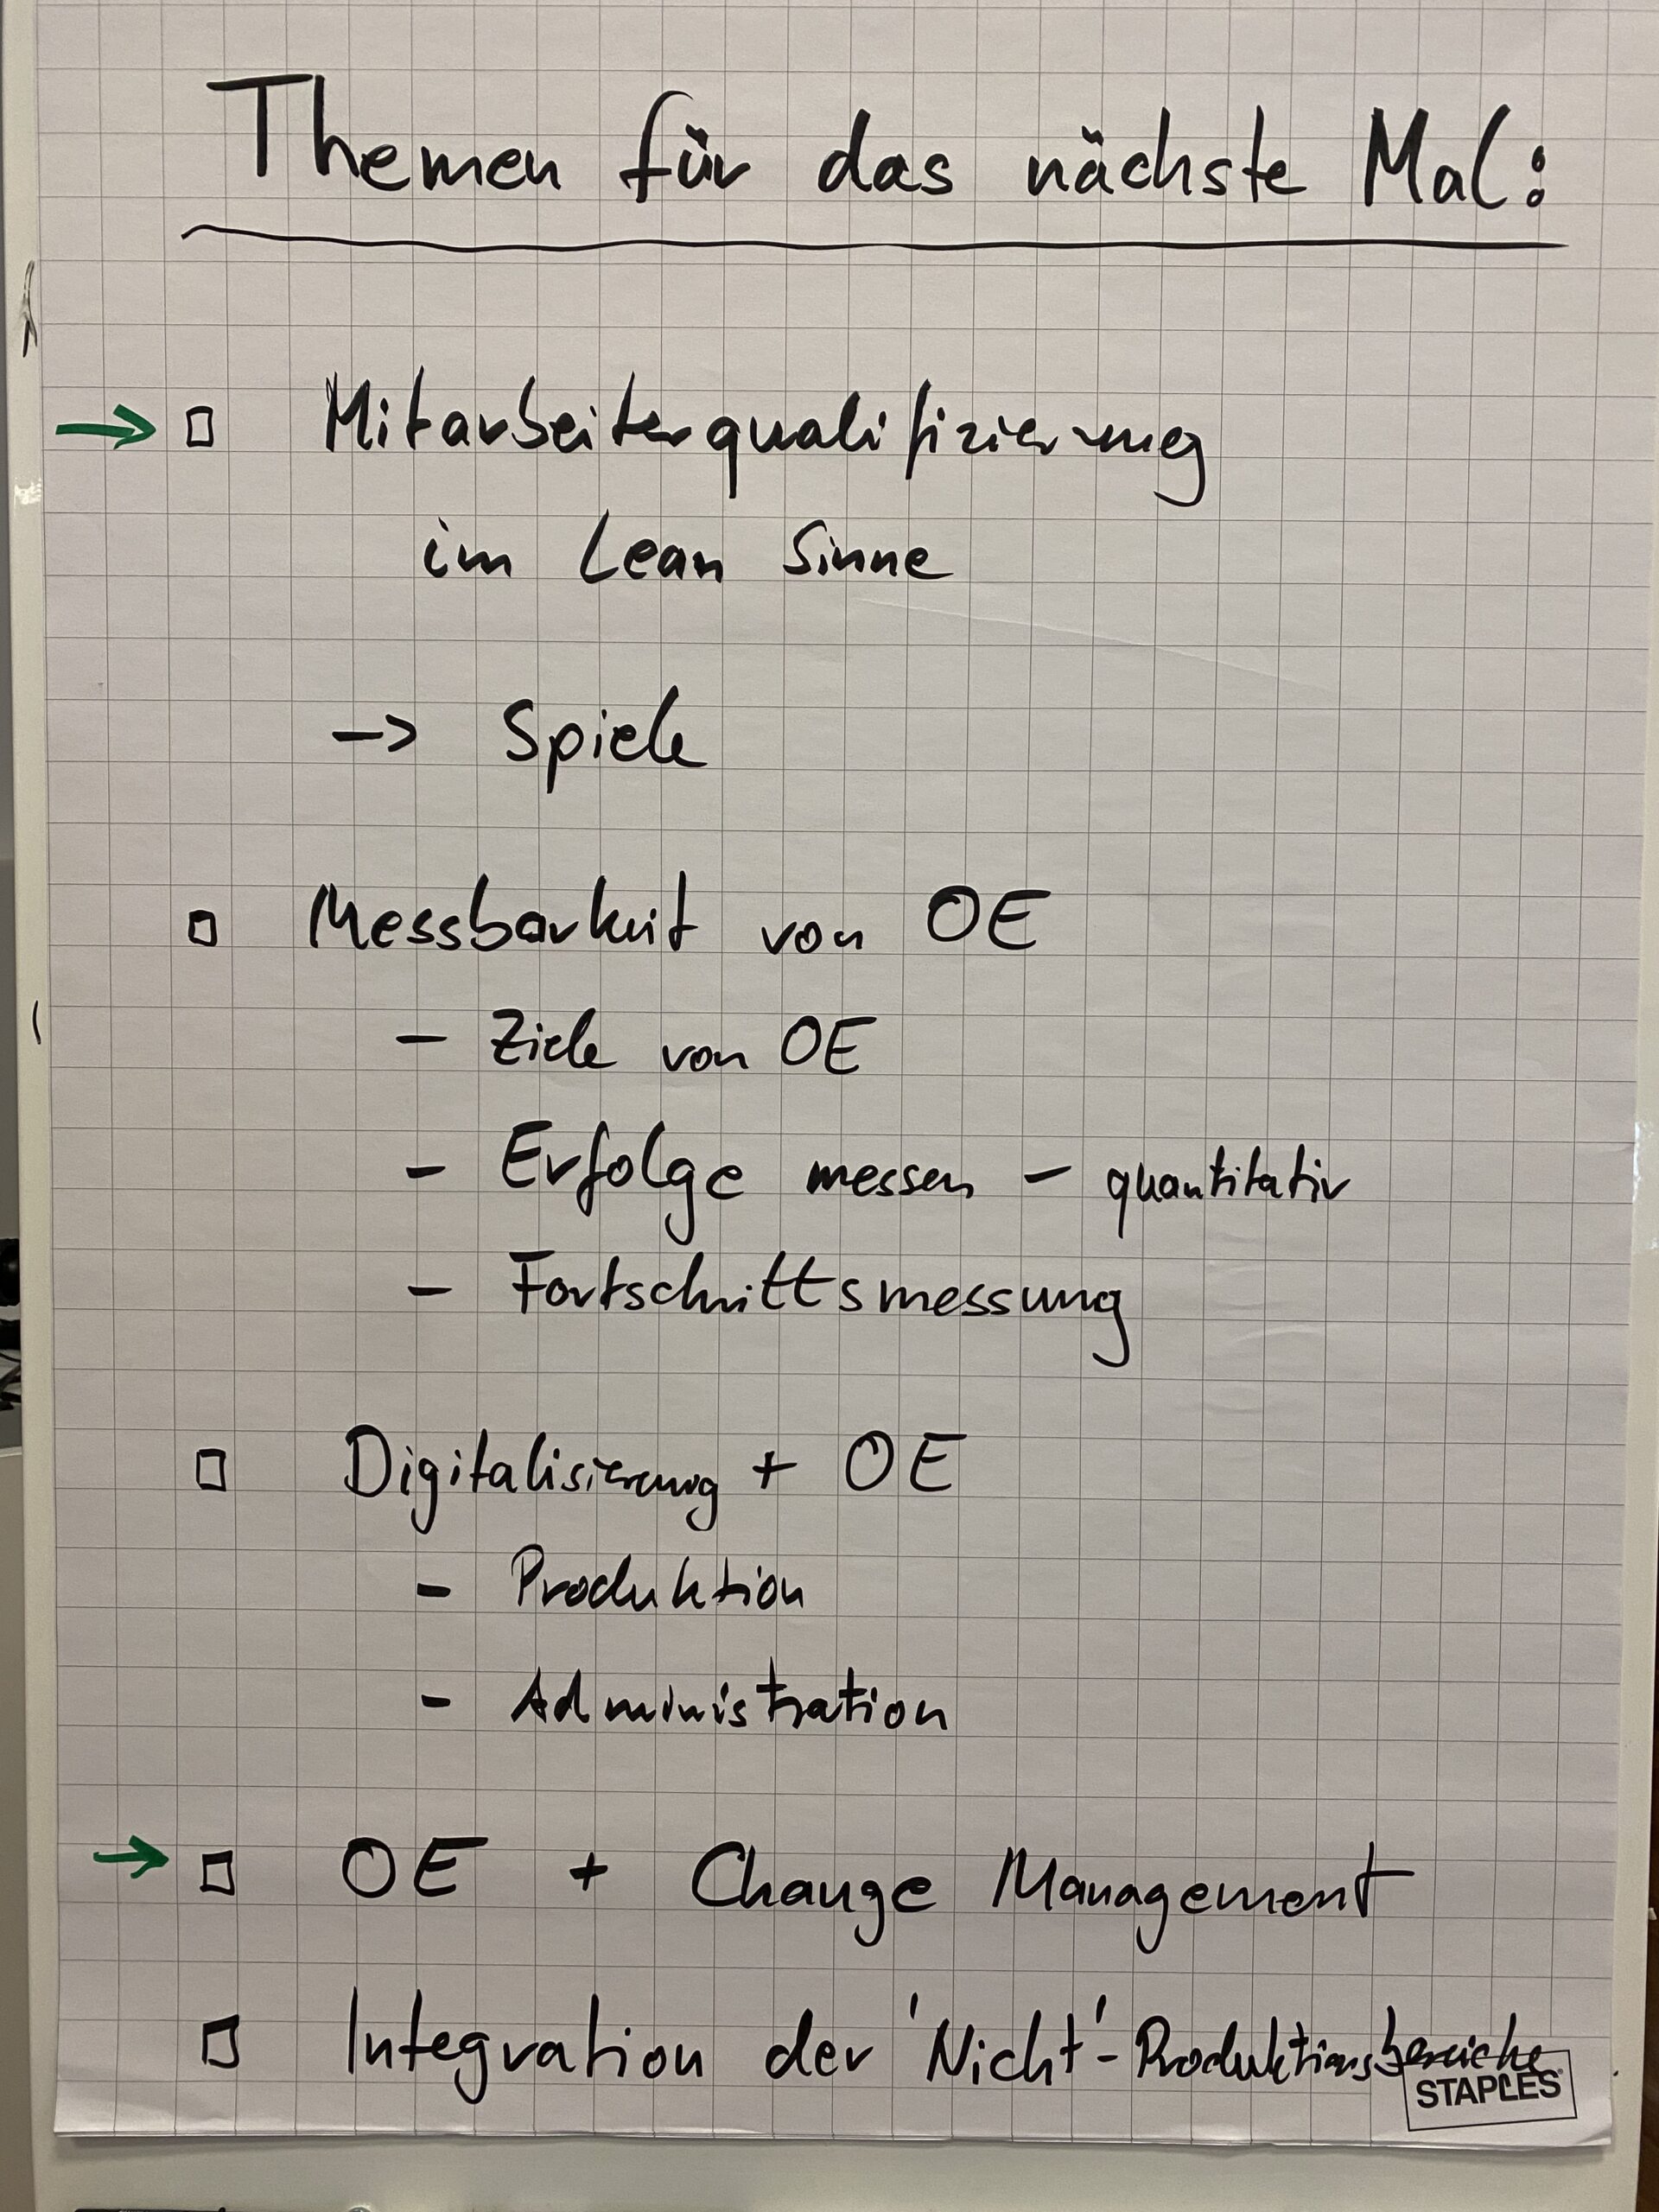 Themen für das nächste Mal:
→ □ Mitarbeiterqualifizierung
im Lean Sinne
-> Spiele
□ Messbarkeit von OE
- Ziele von OE
- Erfolge messen - quantitativ
- Fortschrittsmessung
□ Digitalisierung + OE
- Produktion
- Administration
→ □ OE + Change Management
□ Integration der 'Nicht'-Produktionsbereiche
STAPLES